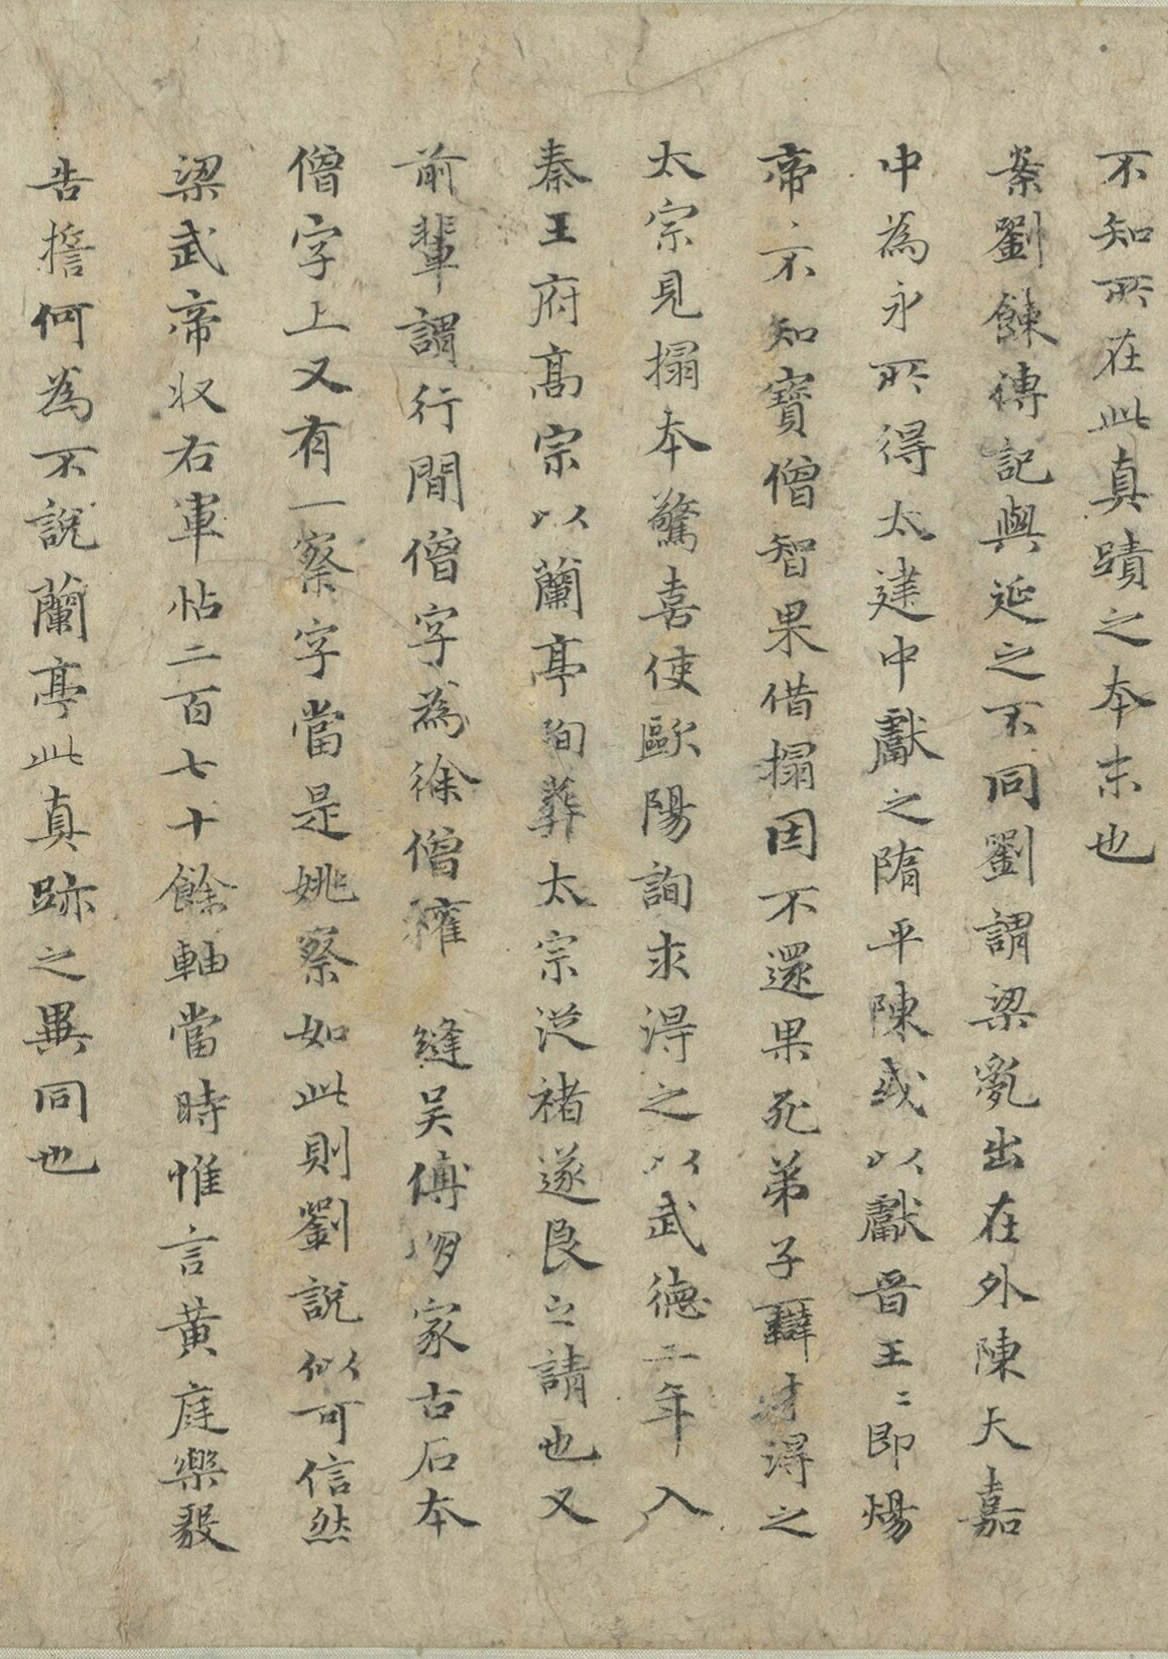 不知所在此真蹟之本末也
案劉餗傳記與延之不同劉謂梁亂出在外陳天嘉
中為永所得太建中獻之隋平陳或以獻晉王二即煬
帝亦不知寶僧智果借搨因不還果死弟子辯才得之
太宗見搨本驚喜使歐陽詢求得之以武德二年入
秦王府高宗以蘭亭殉葬太宗從褚遂良之請也又
前輩謂行間僧字為徐僧權縫吴傅朋家古石本
僧字上又有一察字當是姚察如此則劉說似可信然
梁武帝收右軍帖二百七十餘軸當時惟言黃庭樂毅
告擔何為不說蘭亭此真跡之異同也